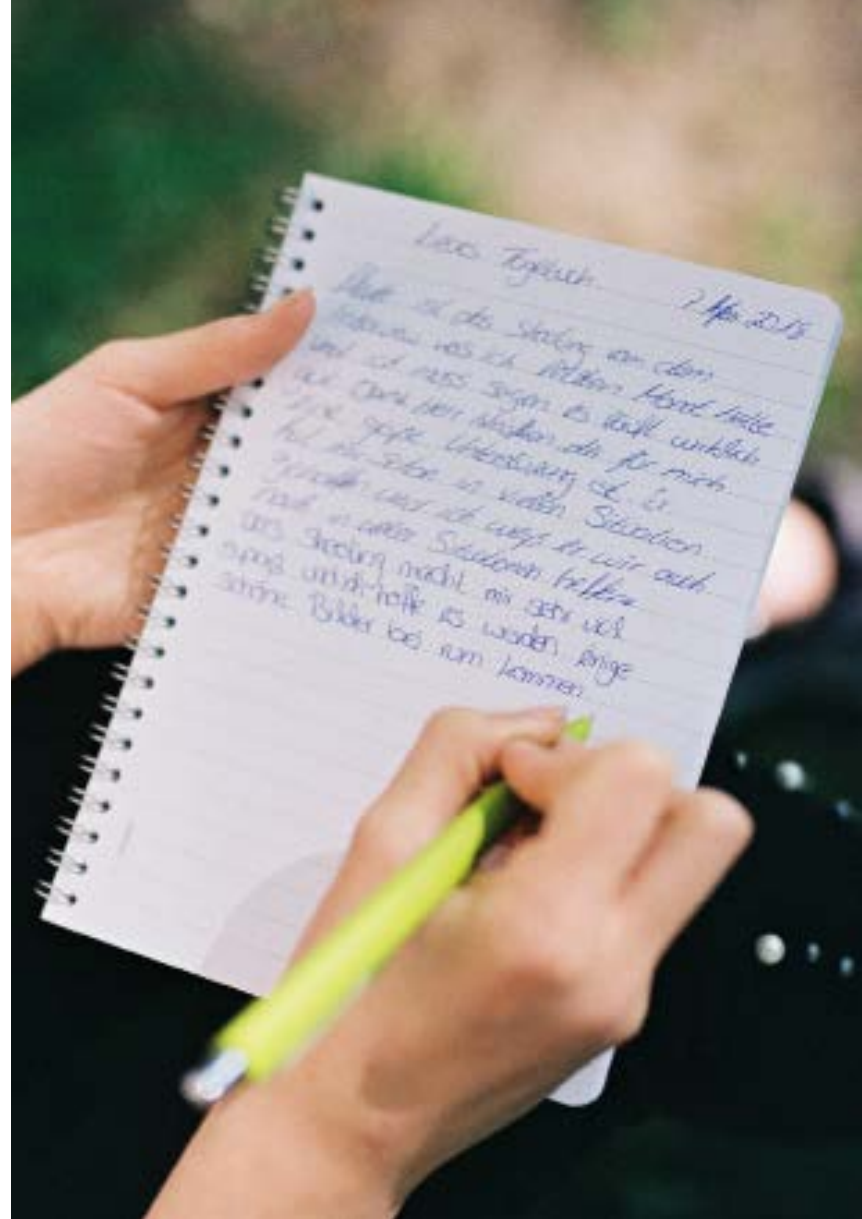 Liebes Tagebuch
7. Mai 2018
Heute ist das Shooting von dem
Interview was ich letzten Monat hatte
und ich muss sagen es läuft wirklich
gut. Dank Herr da für mich
eine große Unterstützung ist. Er
hat mir schon in vielen Situationen
geholfen und ich weiß er wir auch
noch in vielen Situationen helfen
das Shooting macht mir sehr viel
spaß und ich hoffe es werden einige
schöne Bilder bei rum kommen